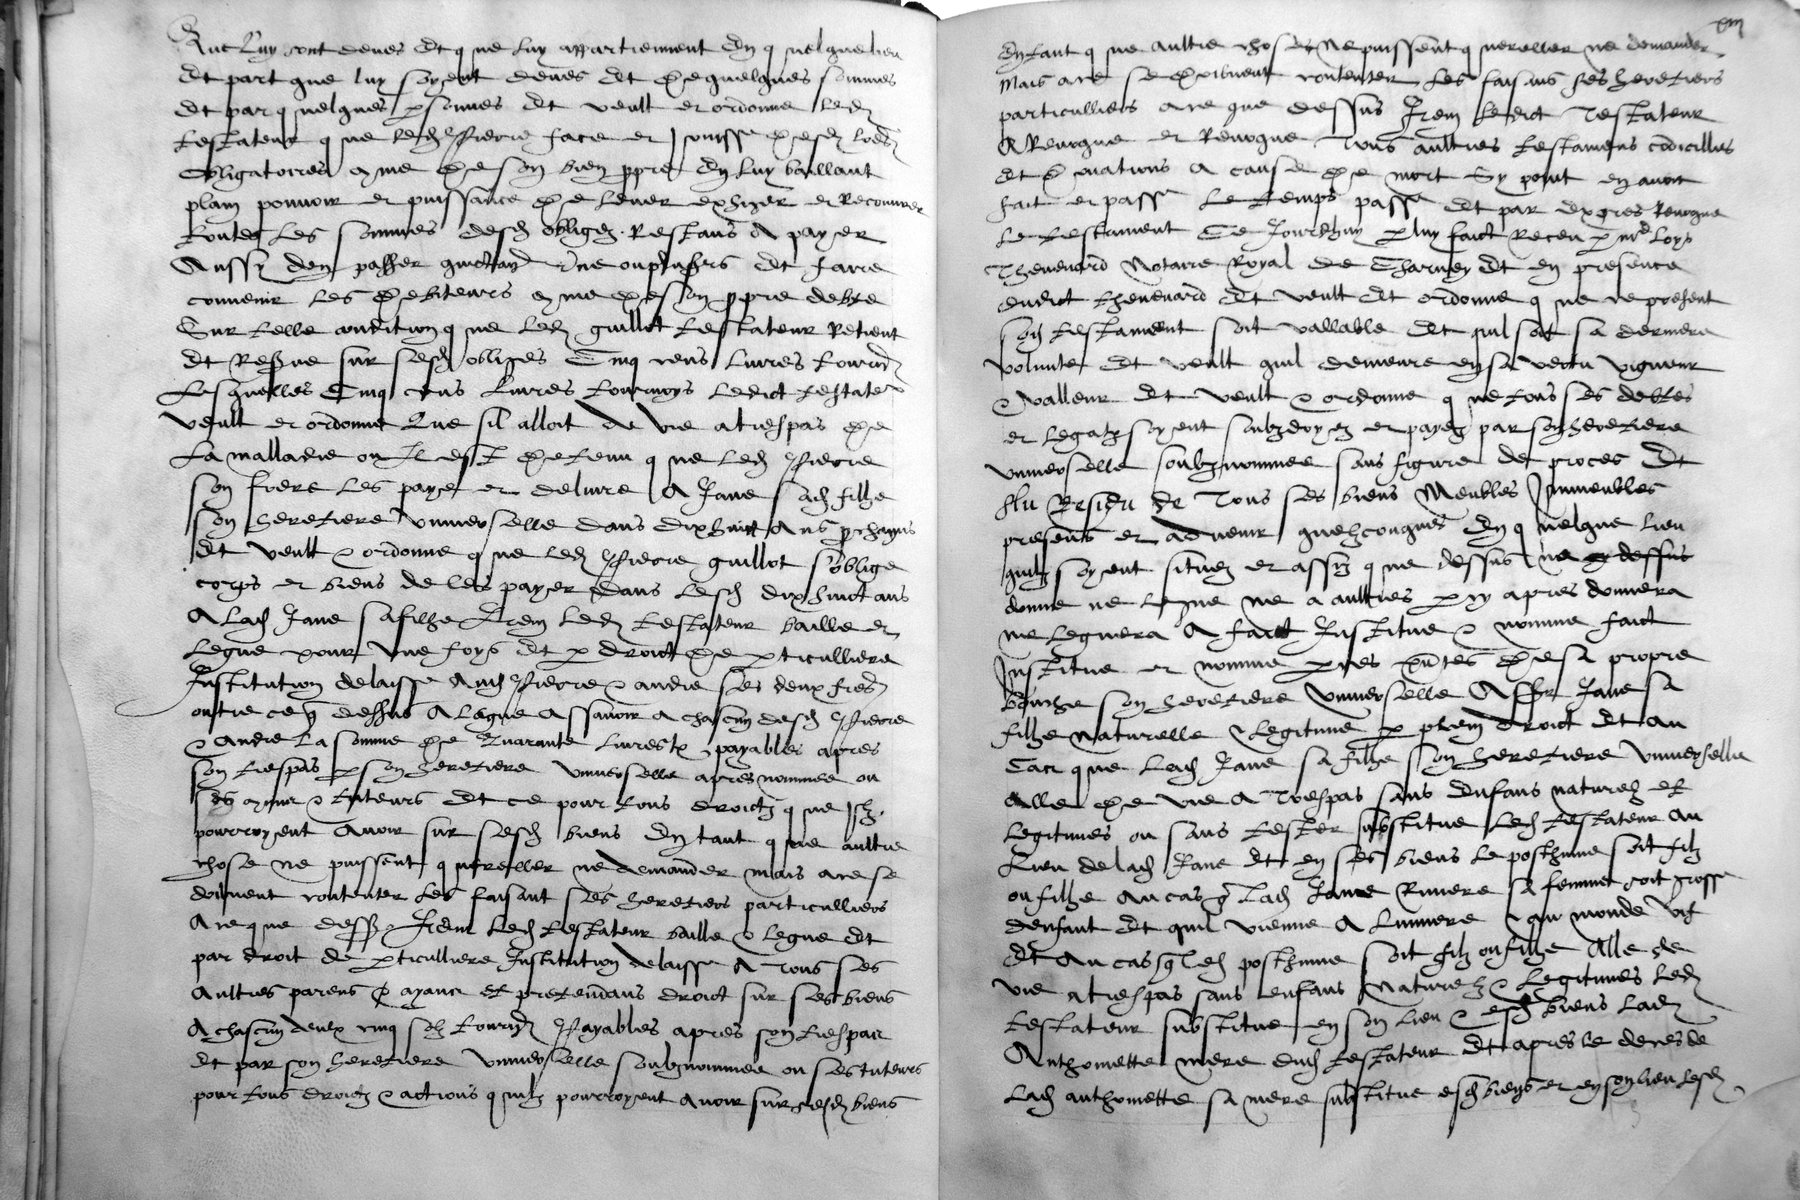 Que luy sont deues et que luy appartiennent en quelque lieu
et part que luy soyent deues et de quelques sommes
et par quelques psonnes et veult et ordonne led
testateur que led Pierre face et jouisse desd
obligatoires come de son bien ppre en luy baillant
plain pouvoir et puissance de lever exhiger et recouvrer
toutes les sommes desd oblige restans a payer
Aussy den passer quictance une ou plusieurs et faire
convenir les debiteurs come de son ppre debte
Sur telle condition que led guillot testateur retient
et reserve sur sesd obliges Cinq cens livres tourn
Lesquelles Cinq cens livres tournoys ledict testateur
veult et ordonne Que sil alloit de vie a trespas de
la malladie ou Il est detenu que led Pierre
son frere les paye et delivre A Jane sad filhe
son heretiere universelle dans dixhuict ans pchains
et veult & ordonne que led Pierre guillot soblige
corps et biens de les payer dans lesd dixhuict ans
A lad Jane sa filhe Item led testateur baille et
legue pour une foys et p droict de pticulliere
Institution delaisse Aud Pierre & andre ses deux freres
oultre ce q dessus a legue Assavoir a chascun desd Pierre
& Andre la somme de Quarante livres tz payables apres
son trespas p son heretiere universelle apres nommee ou
ses tuteurs et ce pour tous droictz que Ilz
pourroyent avoir sur sesd biens En tant que aultre
chose ne puissent quereller ne demander mais ace se
doibvent contenter les faisant ses heretiers particulliers
Ace que dessus Item led testateur baille & legue et
par droit de pticulliere Institution delaisse A tous ses
Aultres parens ayans et pretendans droict sur ses biens
A chascun deulx cinq solz tourn Payables apres son trespas
et par son heretiere universelle soubznommee ou ses tuteurs
pour tous droictz & actions quilz pourroyent avoir sur sesd biens
En tant que aultre chose ne puissent quereller ne demander
Mais ace se doibvent contenter les faisans ses heretiers
particulliers ace que dessus Item ledict testateur
A Revoque et Revoque tous aultres testamens codicilles
et donations A cause de mort Sy point en avoit
fait et passe le temps passe et par expres revoque
le testament Ce Jourdhuy p luy faict receu p me Loys
Thevenard Notaire Royal de Charney et en presence
dudict thevenard et veult et ordonne que ce present
son testament soit vallable et quil soit sa derniere
volunte et veult quil demeure en sa vertu vigueur
& valleur et veult & ordonne que tous ses debtes
et legatz soyent payez par son heretiere
universelle soubznommee sans figure de proces Et
Au Residu de tous ses biens Meubles Immeubles
presens et advenir quelzconques En quelque lieu
quilz soyent situez et assiz que dessus
donne ne legue ne a aultres p cy apres donnera
ne leguera A faict Institue & nomme faict
Institue et nomme p ces pntes de sa propre
bouche son heretiere universelle Assavoir Jane sa
filhe naturelle & legitime p plein droict et au
Cas que lad Jane sa filhe son heretiere universelle
Alle de vie A trespas sans Enfans naturelz et
legitimes ou sans tester substitue led testateur Au
Lieu de lad Jane et en ses biens le posthume soit filz
ou filhe Au cas q lad Jane Riviere sa femme soit grosse
denfant et quil vienne A lumiere & au monde vif
Et Au cas q led posthume soit filz ou filhe Alle de
vie a trespas sans enfans naturelz & legitimes led
testateur substitue en son lieu & esd biens lad
Anthomette mere dud testateur Et apres le deces de
lad anthomette sa mere substitue esd biens et en son lieu lesd